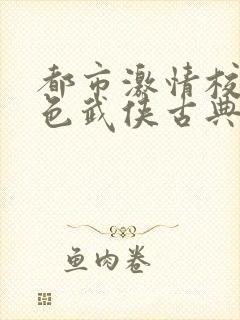 都市激情校
色武侠古典
鱼肉卷